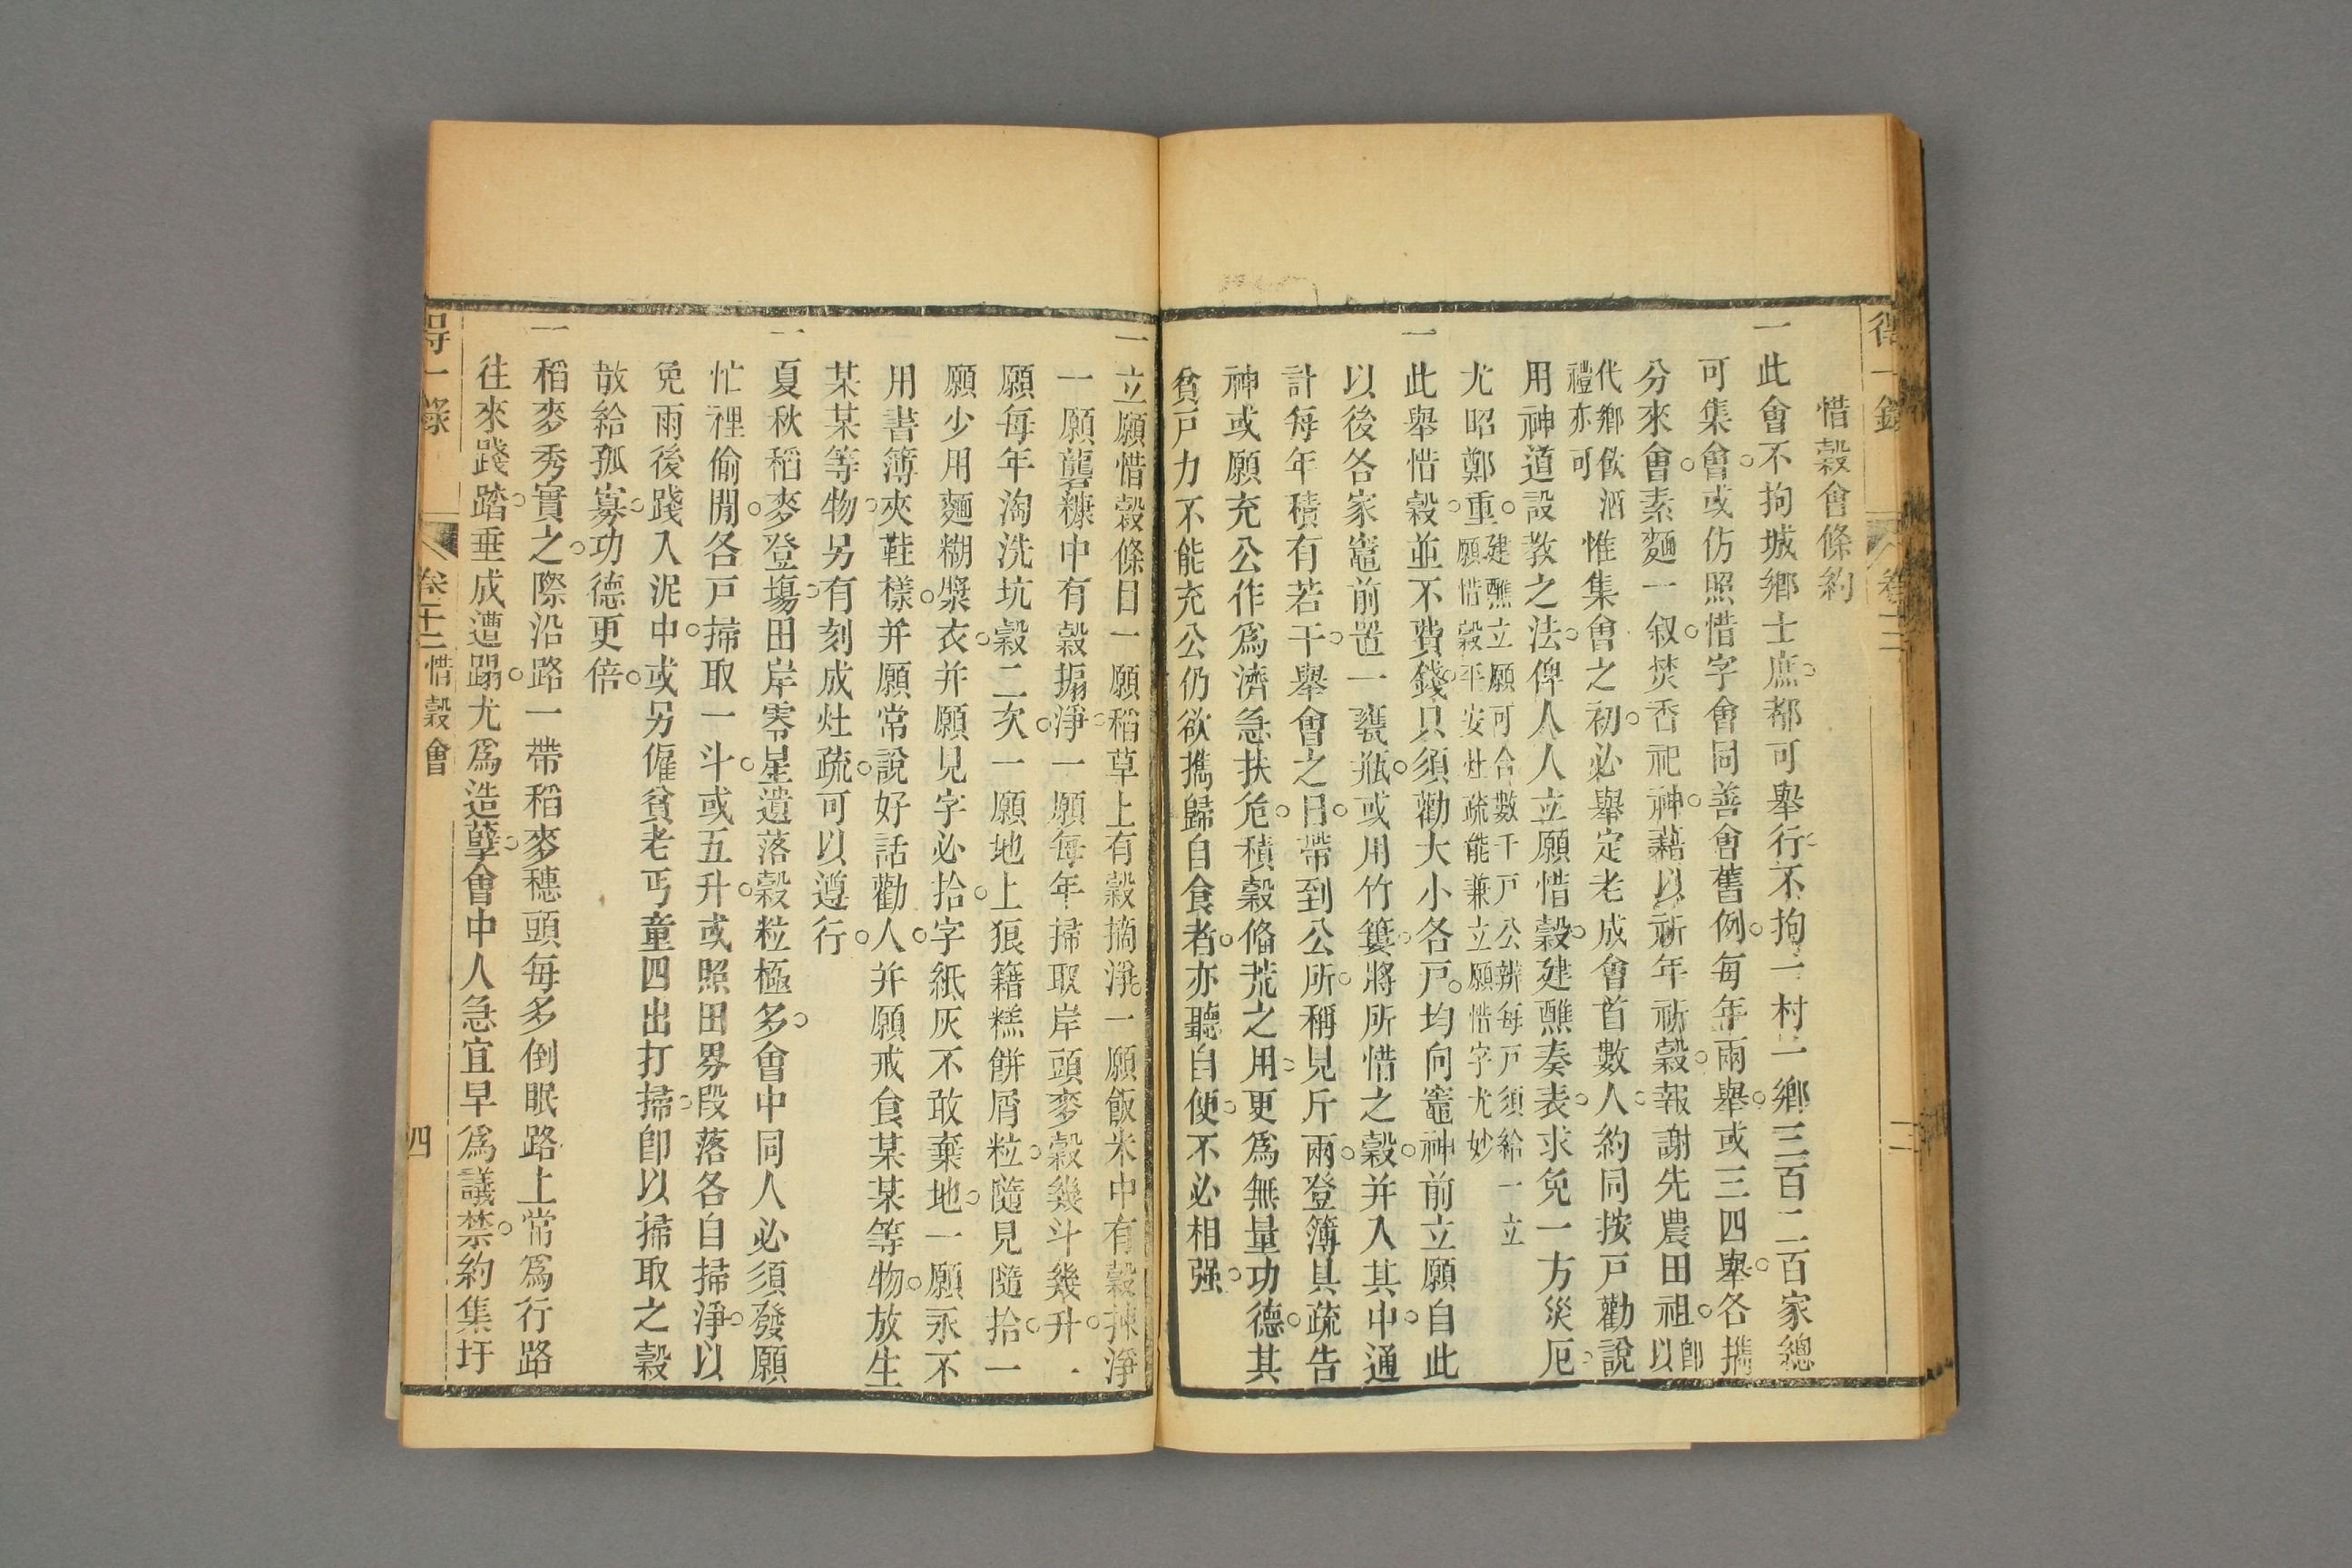 惜穀會條約
一此會不拘城鄉士庶都可舉行不拘一村一鄉三百二百家總
可集會或仿照惜字會同善會舊例每年兩舉或三四舉各攜
分來會素麵一叙焚香祀神藉以祈年祈穀報謝先農田祖即以
代鄉飲酒禮亦可惟集會之初必舉定老成會首數人約同按戸勸說
用神道設教之法俾人人立願惜穀建醮奏表求免一方災厄
尤昭鄭重建醮立願可合數千戸公辨每戸須給一立
願惜穀平安灶疏能兼立願惜字尤妙
一此舉惜穀並不費錢只須勸大小各戸均向竈神前立願自此
以後各家竈前置一甕瓶或用竹簍將所惜之穀并入其中通
計每年積有若干舉會之日帶到公所稱見斤兩登簿具疏告
神或願充公作爲濟急扶危積穀偹荒之用更爲無量功德其
貧戸力不能充公仍欲攜歸自食者亦聽自便不必相强
一立願惜穀條目一願稻草上有穀摘淨一願飯米中有穀揀淨
一願礱糠中有穀搧淨一願每年掃取岸頭麥穀幾斗幾升一
願每年淘洗坑穀二次一願地上狼籍糕餅屑粒隨見隨拾一
願少用麵糊漿衣并願見字必拾字紙灰不敢棄地一願永不
用書簿夾鞋樣并願常說好話勸人并願戒食某某等物放生
某某等物另有刻成灶疏可以遵行
一夏秋稻麥登塲田岸零星遺落穀粒極多會中同人必須發願
忙裡偷閒各戸掃取一斗或五升或照田界段落各自掃淨以
免雨後踐入泥中或另僱貧老丐童四出打掃卽以掃取之穀
散給孤寡功德更倍
一稻麥秀實之際沿路一帶稻麥穗頭每多倒眠路上常爲行路
往來踐踏垂成遭蹋尤爲造孽會中人急宜早爲議禁約集圩
得一錄
卷十二
惜穀會
四